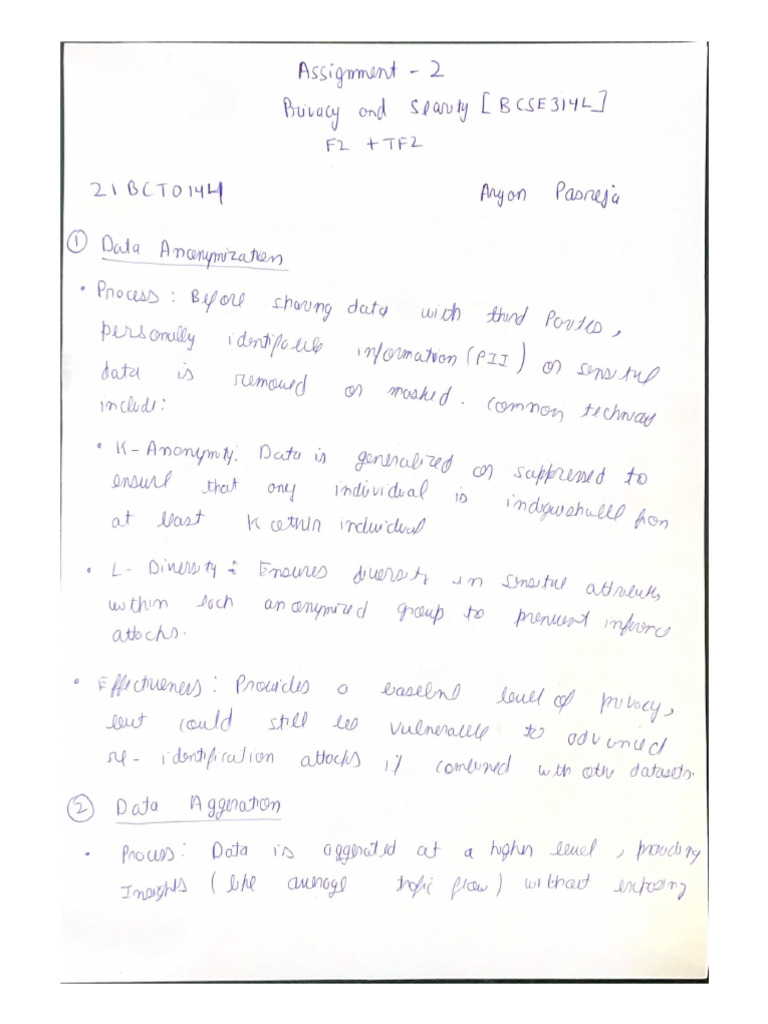 Assignment - 2
Privacy and Searity [BCSE314L]
F2 + TF2
21BCT0144 Aryan Pasreja
① Data Anonymization
• Process: Before sharing data with third Parties,
personally identifiable information (PII) or sensitive
data is removed or masked. common techniques
include:
• K-Anonymity: Data is generalized or suppressed to
ensure that any individual is from
at least K individual
• L-Diversity: Ensures diversity in sensitive attributes
within each anonymized group to prevent inference
attacks.
• Effectiveness: Provides a baseline level of privacy,
but could still be vulnerable to advanced
re-identification attacks if combined with other datasets.
② Data Aggeration
• Process: Data is aggerated at a higher level, providing
Insights (like average trafic flow) without exposing